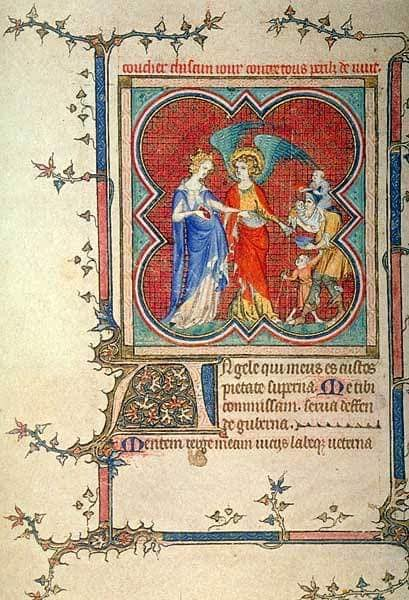 coucher chascun iour contre tous perilz de nuit.
Angele qui meus es custos
pietate superna. Me tibi
commissam. serua deffen
de guberna.
Mentem terge meam uicijs labeq; ueterna